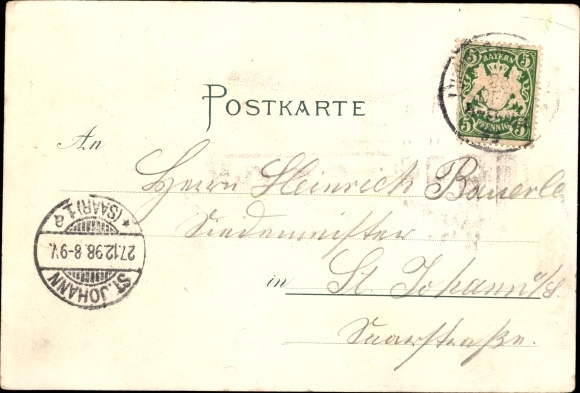 5 BAYERN 5
5 PFENNIG 5
POSTKARTE
An
Herrn Heinrich Bauerle
Siedemeister
in St. Johann a/S.
Saarstraße.
* (SAAR) 1 a
27.12.98. 8-9V.
ST. JOHANN